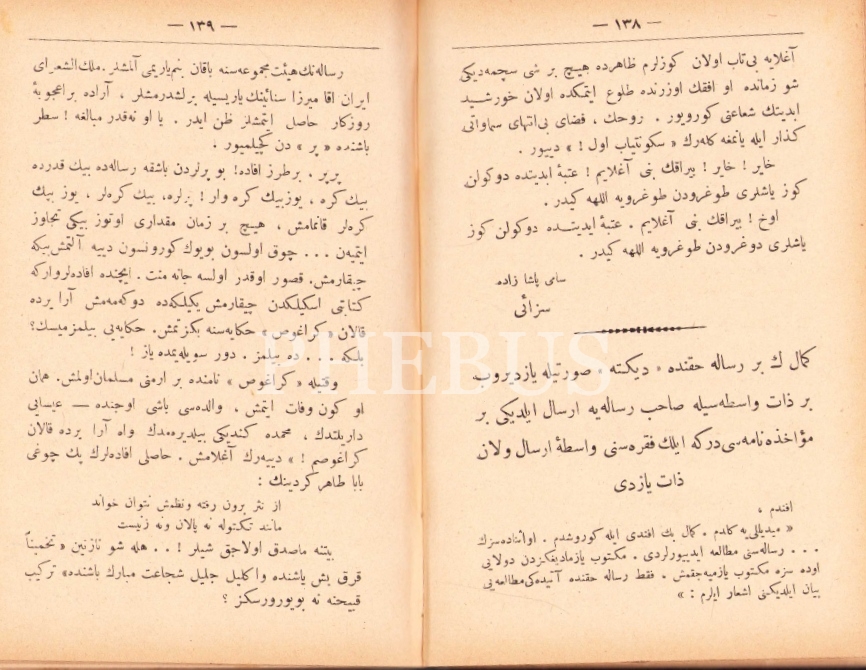 — ١٣٨ —
آغلایه بی‌تاب اولان كوزلرم ظاهرده هیچ بر شی سچمه‌دیكی
شو زمانده او افقك اوزرنده طلوع ایتمكده اولان خورشید
ابدیتك شعاعنی كورویور . روحك ، فضای بی‌انتهای سماواتی
كذار ایله یانمغه كله‌رك « سكونتیاب اول ! » دییور .
خایر ! خایر ! بیراقك بنی آغلایم ! عتبۀ ابدیتده دوكولن
كوز یاشلری طوغرودن طوغرویه اللهه كیدر .
اوخ ! بیراقك بنی آغلایم . عتبۀ ابدیتده دوكولن كوز
یاشلری دوغرودن طوغرویه اللهه كیدر .
سامی پاشا زاده
سزائی
كمال ك بر رساله حقنده « دیكته » صورتیله یازدیروب
بر ذات واسطه‌سیله صاحب رساله‌یه ارسال ایلدیكی بر
مؤاخذه‌نامه‌سی‌دركه ایلك فقره‌سنی واسطۀ ارسال اولان
ذات یازدی
افندم ،
« میدیللی‌یه كلدم . كمال بك افندی ایله كوروشدم . اواثناده‌سزك
. . . رساله‌سنی مطالعه ایدییورلردی . مكتوب یازمادیغكزدن دولایی
اوده سزه مكتوب یازمیه‌جقمش . فقط رساله حقنده آتیده‌كی‌مطالعه‌یی
بیان ایلدیكنی اشعار ایلرم : »
— ١٣٩ —
رساله‌نك هیئت مجموعه‌سنه باقان بنم‌یاریمی آلمشلر . ملك‌الشعرای
ایران اقا میرزا سنائینك یاریسیله برلشدرمشلر ، آراده براعجوبۀ
روزكار حاصل ایتمشلر ظن ایدر . یا او نه‌قدر مبالغه ! سطر
باشنده « پر » دن كچیلمیور .
پرپر . برطرز افاده ! بو پرلردن باشقه رساله‌ده بیك قدرده
بیك كره ، یوزبیك كره وار ! پرلره، بیك كره‌لر ، یوز بیك
كره‌لر قاتمامش ، هیچ بر زمان مقداری اوتوز بیكی تجاوز
ایتمه‌ین . . . چوق اولسون بویوك كورونسون دییه آلتمش‌بیكه
چیقارمش. قصور اوقدر اولسه جانه منت . ایچنده افاده‌لروار‌كه
كتابتی اسكیلكدن چیقارمش یكیلكه‌ده دوكه‌مه‌مش آرا یرده
قالان « كراغوص » حكایه‌سنه بكزتمش. حكایه‌یی بیلمزمیسك؟
بلكه . . . ده بیلمز . دور سویله‌یم‌ده یاز !
وقتیله « كراغوص » نامنده بر ارمنی مسلمان‌اولمش. همان
او كون وفات ایتمش . والده‌سی باشی اوجنده — عیسایی
داریلتدك ، محمده كندیكی بیلدیره‌مدك واه آرا یرده قالان
كراغوصم ! » دییه‌رك آغلامش . حاصلی افاده‌لرك پك چوغی
بابا طاهر كردینك :
از نثر برون رفته ونظمش نتوان خواند
مانند نه پالان ونه زنیست
بیتنه ماصدق اولاجق شیلر ! . . هله شو نازنین « تخمیناً
قرق بش یاشنده واكلیل جلیل شجاعت مبارك باشنده» تركیب
قبیحنه نه بویورورسكز ؟
PHEBUS